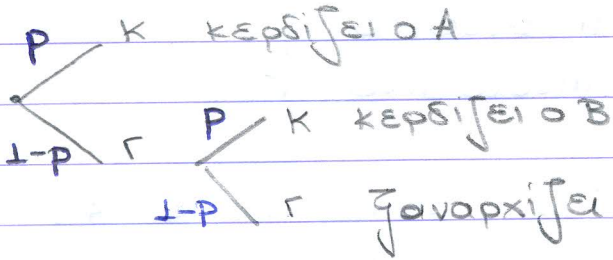 P K κερδίζει ο Α
1-P Γ P K κερδίζει ο Β
1-P Γ ξαναρχίζει